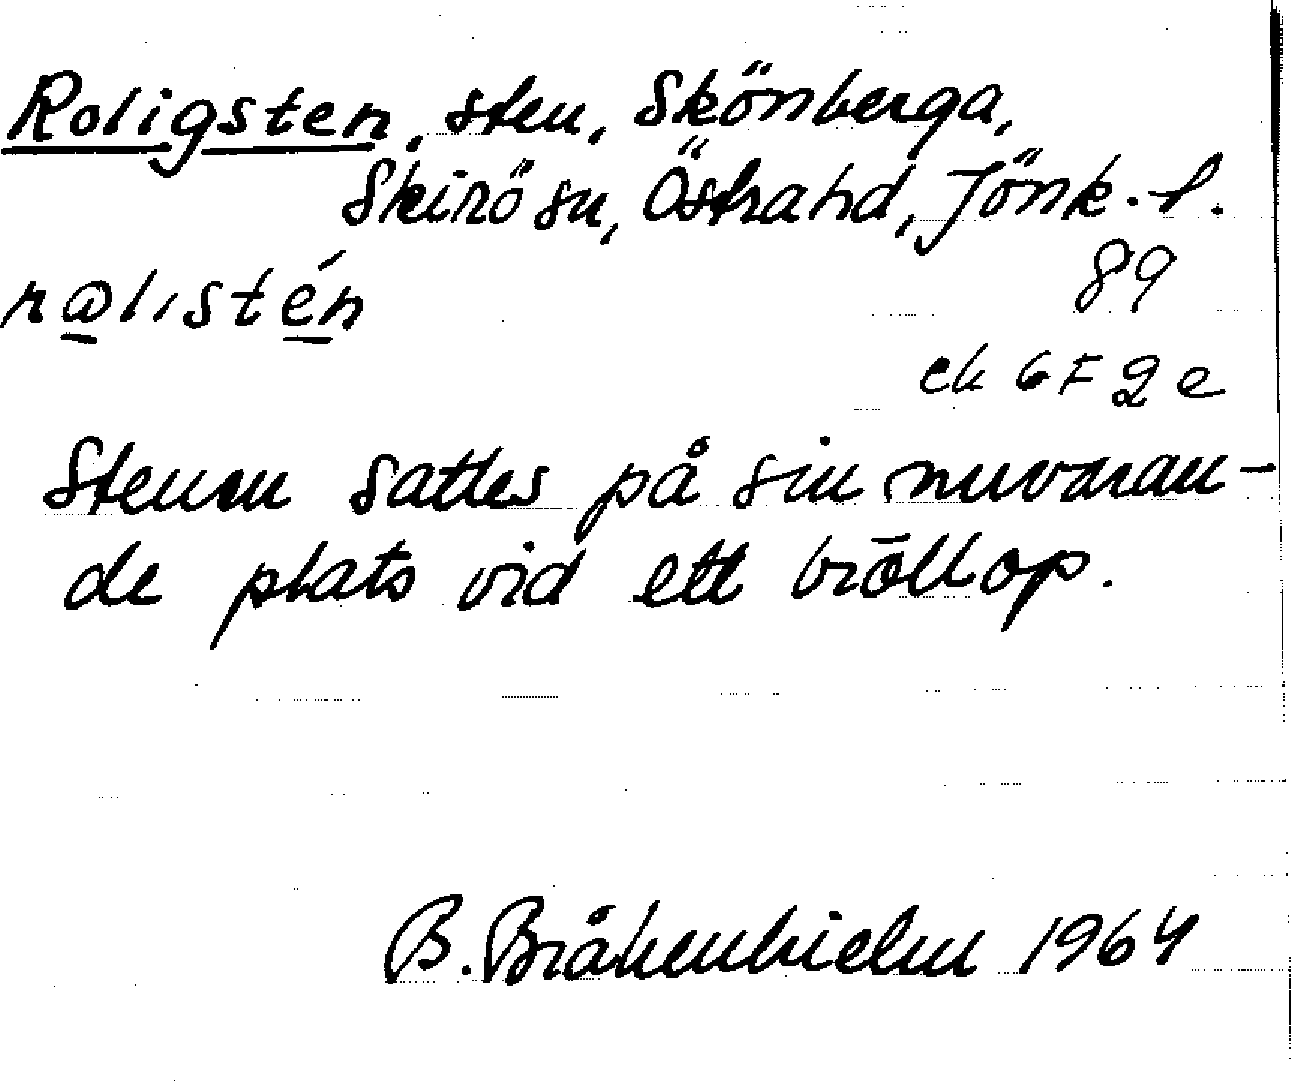 Roligsten, sten, Skönberga,
Skirö sn, Östra hd, Jönk. l.
89
r@listén
ek 6 F 2 e
Stenen sattes på sin nuvaran-
de plats vid ett bröllop.
B. Bråkenhielm 1964